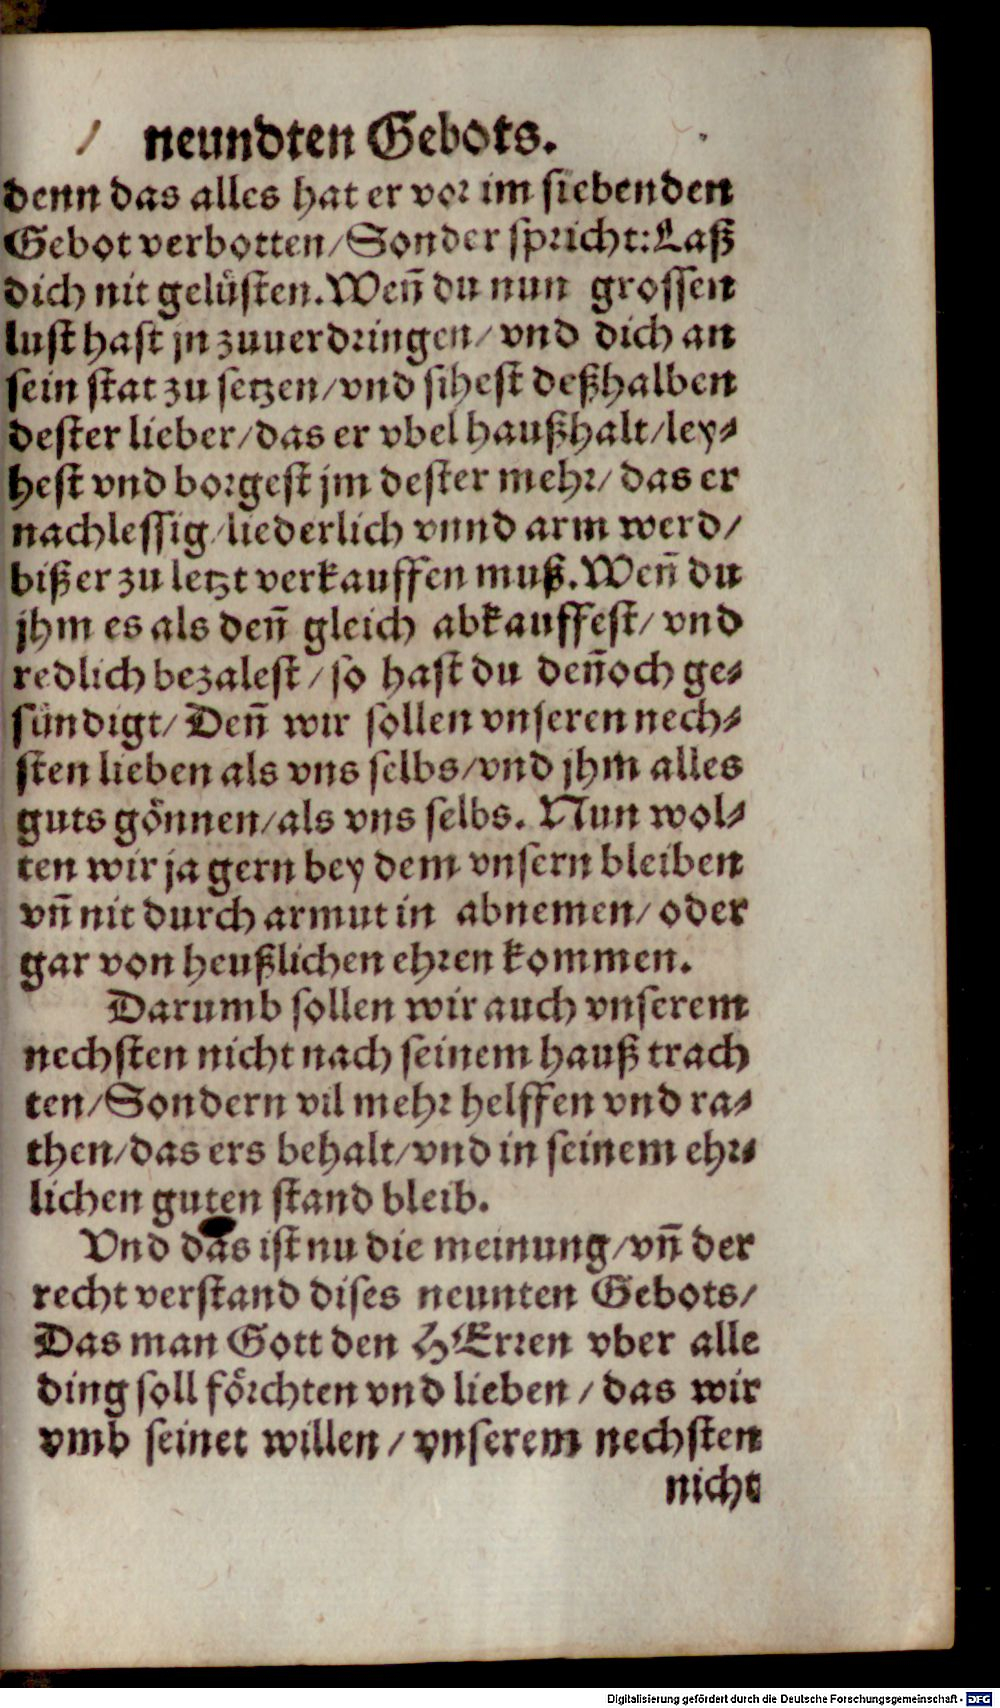 neundten Gebots.
denn das alles hat er vor im siebenden
Gebot verbotten/Sonder spricht: Laß
dich nit gelüsten. Weñ du nun grossen
lust hast jn zuuerdringen/ vnd dich an
sein stat zu setzen/vnd sihest deßhalben
dester lieber/das er vbel haußhalt/ley⸗
hest vnd borgest jm dester mehr/ das er
nachlessig/liederlich vnnd arm werd/
biß er zu letzt verkauffen muß. Weñ du
jhm es als deñ gleich abkauffest/ vnd
redlich bezalest/ so hast du deñoch ge⸗
sündigt/ Deñ wir sollen vnseren nech⸗
sten lieben als vns selbs/vnd jhm alles
guts gönnen/als vns selbs. Nun wol⸗
ten wir ja gern bey dem vnsern bleiben
vñ nit durch armut in abnemen/ oder
gar von heußlichen ehren kommen.
Darumb sollen wir auch vnserem
nechsten nicht nach seinem hauß trach
ten/Sondern vil mehr helffen vnd ra⸗
then/das ers behalt/vnd in seinem ehr⸗
lichen guten stand bleib.
Vnd das ist nu die meinung/vñ der
recht verstand dises neunten Gebots/
Das man Gott den HErren vber alle
ding soll förchten vnd lieben/ das wir
vmb seinet willen/ vnserem nechsten
nicht
Digitalisierung gefördert durch die Deutsche Forschungsgemeinschaft - DFG